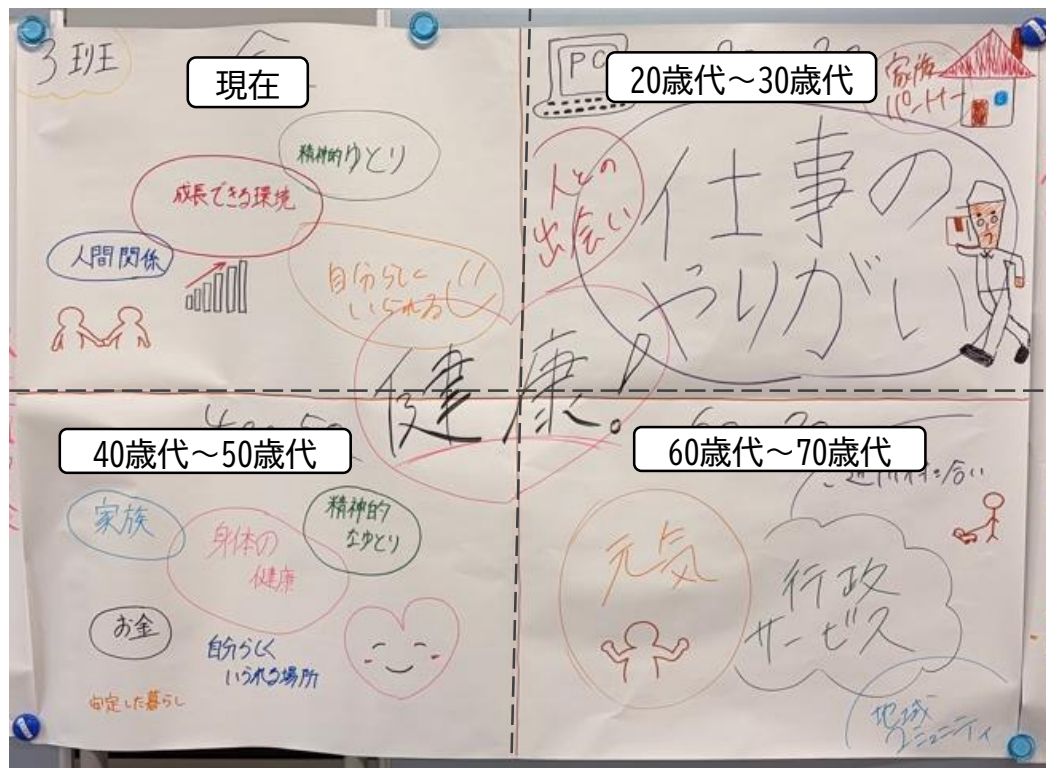 3班
現在
精神的ゆとり
成長できる環境
人間関係
自分らしく
いられる
20歳代～30歳代
PC
家族
パートナー
人との
出会い
仕事の
やりがい
健康!
40歳代～50歳代
家族
身体の
健康
精神的
なゆとり
お金
自分らしく
いられる場所
安定した暮らし
60歳代～70歳代
ご近所付き合い
元気
行政
サービス
地域
コミュニティ